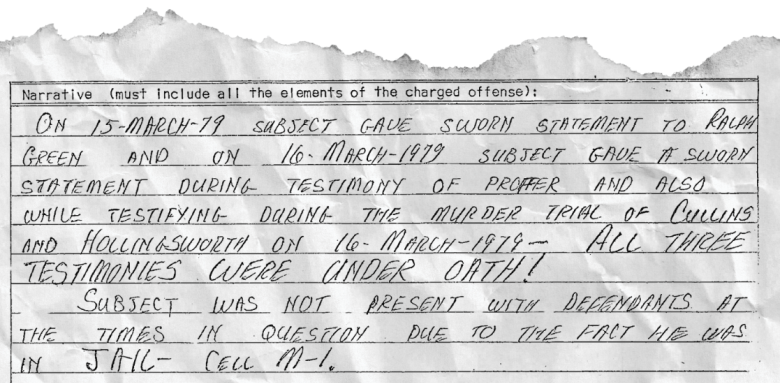 Narrative (must include all the elements of the charged offense):
ON 15-MARCH-79 SUBJECT GAVE SWORN STATEMENT TO RALPH
GREEN AND ON 16-MARCH-1979 SUBJECT GAVE A SWORN
STATEMENT DURING TESTIMONY OF PROFFER AND ALSO
WHILE TESTIFYING DURING THE MURDER TRIAL OF CULLINS
AND HOLLINGSWORTH ON 16-MARCH-1979- ALL THREE
TESTIMONIES WERE UNDER OATH!
SUBJECT WAS NOT PRESENT WITH DEFENDANTS AT
THE TIMES IN QUESTION DUE TO THE FACT HE WAS
IN JAIL- CELL M-1.